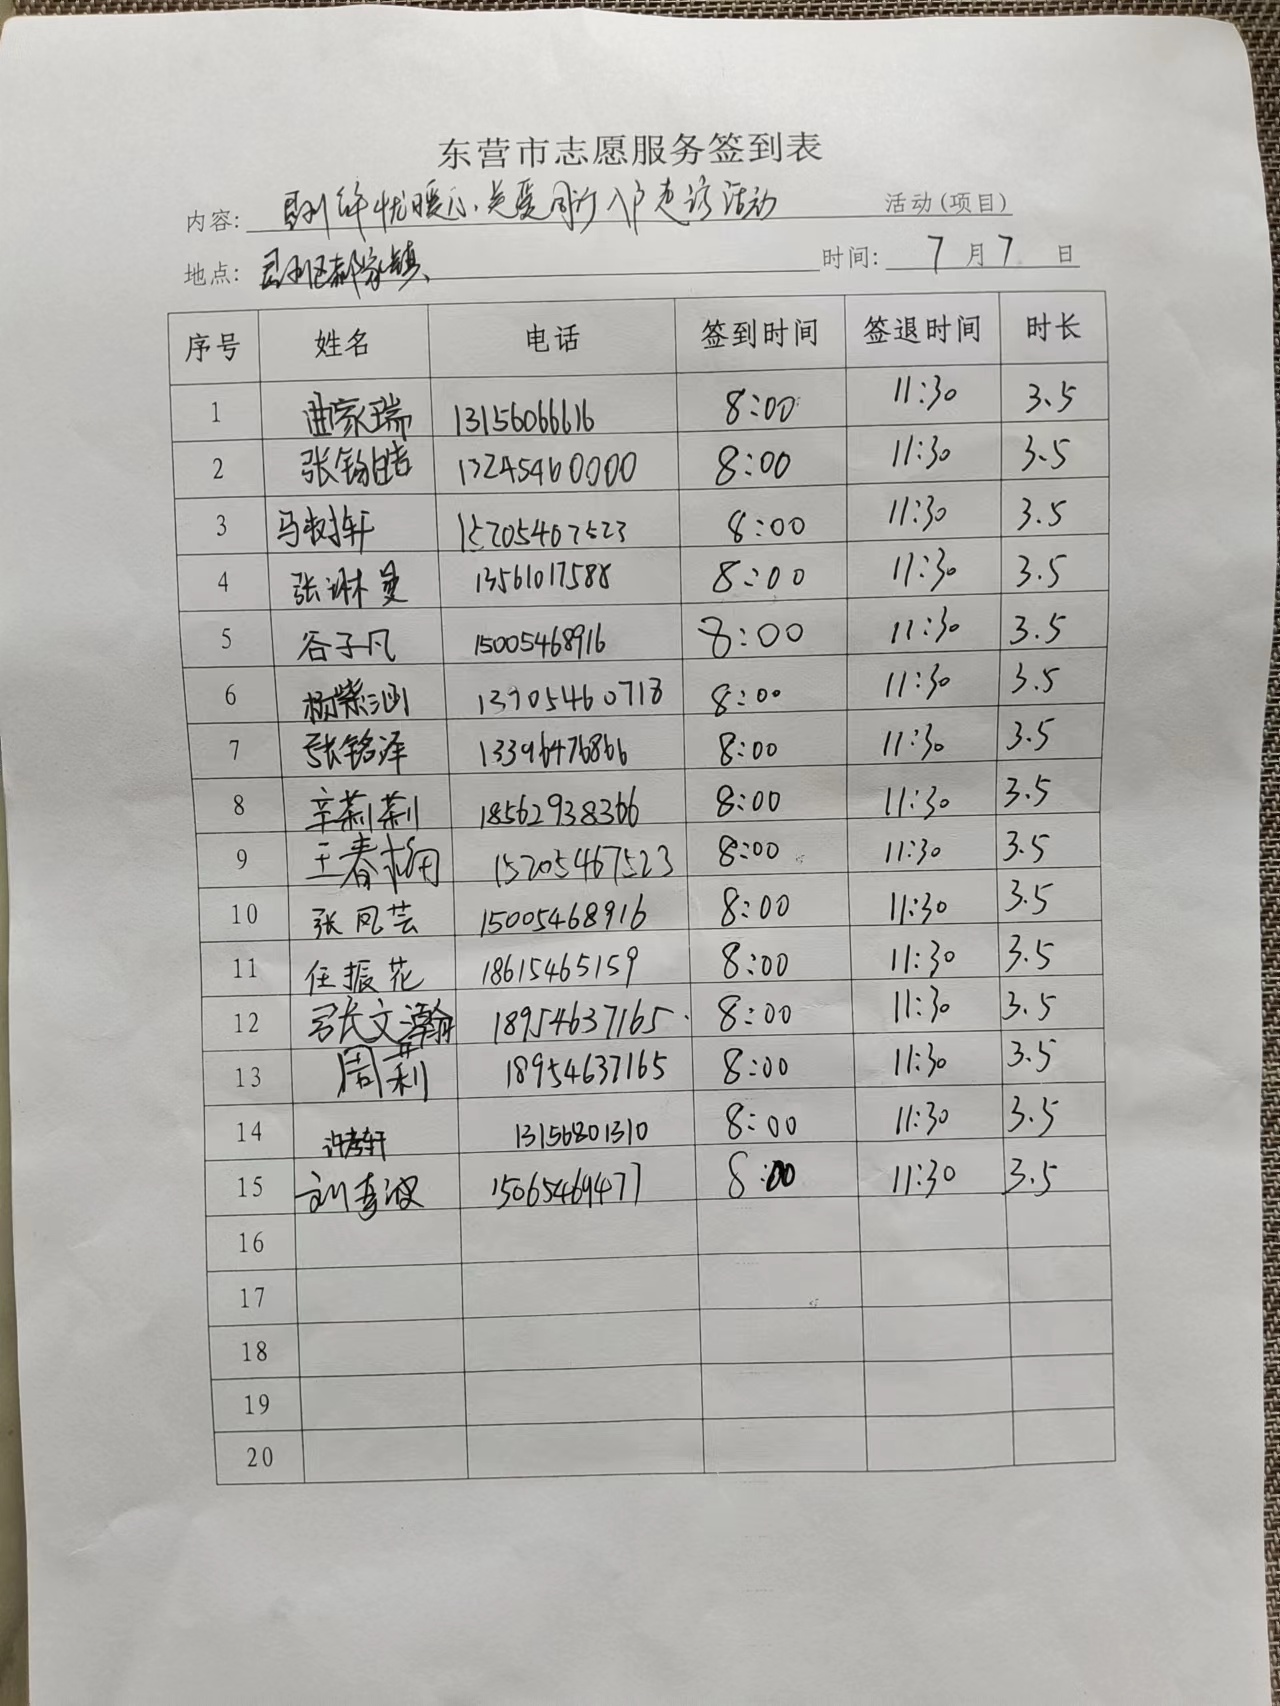 东营市志愿服务签到表
内容: 垦利解忧暖心、关爱同行入户走访活动 活动(项目)
地点: 垦利区郝家镇 时间: 7月7日
序号 姓名 电话 签到时间 签退时间 时长
1 曲家瑞 13156066616 8:00 11:30 3.5
2 张钧皓 13245460000 8:00 11:30 3.5
3 马树轩 15205467523 8:00 11:30 3.5
4 张琳曼 13561017588 8:00 11:30 3.5
5 谷子凡 15005468916 8:00 11:30 3.5
6 杨紫涵 13705460718 8:00 11:30 3.5
7 张铭泽 13396476866 8:00 11:30 3.5
8 辛莉莉 18562938366 8:00 11:30 3.5
9 王春梅 15205467523 8:00 11:30 3.5
10 张凤芸 15005468916 8:00 11:30 3.5
11 任振花 18615465159 8:00 11:30 3.5
12 张文瀚 18954637165 8:00 11:30 3.5
13 周莉 18954637165 8:00 11:30 3.5
14 许孝轩 13156801310 8:00 11:30 3.5
15 刘 15065469477 8:00 11:30 3.5
16
17
18
19
20